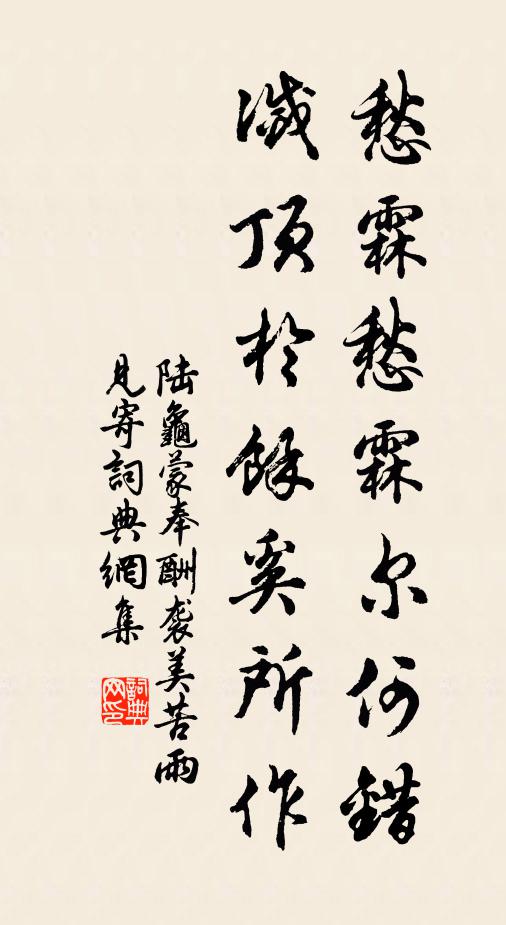 愁霖愁霖尔何錯
滅頂於餘奚所作
陆龜蒙奉酬袭美苦雨
見寄詞典網集
詞典网印